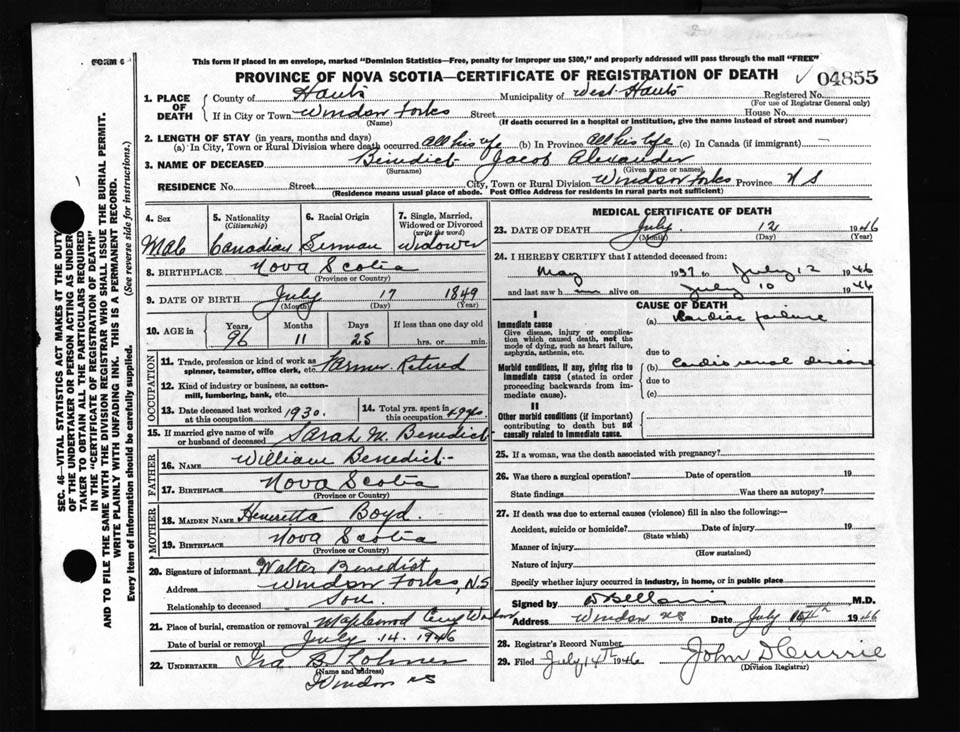 FORM 6
This form if placed in an envelope, marked "Dominion Statistics—Free, penalty for improper use $300," and properly addressed will pass through the mail "FREE"
PROVINCE OF NOVA SCOTIA—CERTIFICATE OF REGISTRATION OF DEATH
✓ 04855
SEC. 46—VITAL STATISTICS ACT MAKES IT THE DUTY
OF THE UNDERTAKER OR PERSON ACTING AS UNDER-
TAKER TO OBTAIN ALL THE PARTICULARS REQUIRED
IN THE "CERTIFICATE OF REGISTRATION OF DEATH"
AND TO FILE THE SAME WITH THE DIVISION REGISTRAR WHO SHALL ISSUE THE BURIAL PERMIT.
WRITE PLAINLY WITH UNFADING INK. THIS IS A PERMANENT RECORD.
Every item of information should be carefully supplied. (See reverse side for instructions.)
1. PLACE OF DEATH
County of Hants Municipality of West Hants Registered No.
(For use of Registrar General only)
If in City or Town Windsor Forks Street House No.
(Name) (If death occurred in a hospital or institution, give the name instead of street and number)
2. LENGTH OF STAY (in years, months and days)
(a) In City, Town or Rural Division where death occurred All his life (b) In Province All his life (c) In Canada (if immigrant) —
3. NAME OF DECEASED Benedict Jacob Alexander
(Surname) (Given name or names)
RESIDENCE No. Street City, Town or Rural Division Windsor Forks Province N S
(Residence means usual place of abode. Post Office Address for residents in rural parts not sufficient)
4. Sex
Male
5. Nationality (Citizenship)
Canadian
6. Racial Origin
German
7. Single, Married, Widowed or Divorced (write the word)
Widower
8. BIRTHPLACE Nova Scotia
(Province or Country)
9. DATE OF BIRTH July 17 1849
(Month) (Day) (Year)
10. AGE in Years Months Days If less than one day old
96 11 25 hrs. or min.
OCCUPATION
11. Trade, profession or kind of work as spinner, teamster, office clerk, etc. Farmer Retired
12. Kind of industry or business, as cotton-mill, lumbering, bank, etc.
13. Date deceased last worked at this occupation 1930.
14. Total yrs. spent in this occupation
15. If married give name of wife or husband of deceased Sarah M. Benedict
FATHER
16. NAME William Benedict
17. BIRTHPLACE Nova Scotia
(Province or Country)
MOTHER
18. MAIDEN NAME Henrietta Boyd.
19. BIRTHPLACE Nova Scotia
(Province or Country)
20. Signature of informant Walter Benedict
Address Windsor Forks, N.S
Relationship to deceased Son
21. Place of burial, cremation or removal Maplewood Cem Windsor
Date of burial or removal July 14. 1946
22. UNDERTAKER Ira B
(Name and address)
Windsor NS
MEDICAL CERTIFICATE OF DEATH
23. DATE OF DEATH July 12 1946
(Month) (Day) (Year)
24. I HEREBY CERTIFY that I attended deceased from:
May 1937 to July 12 1946
and last saw h im alive on July 10 1946
CAUSE OF DEATH
I
Immediate cause
Give disease, injury or complication which caused death, not the mode of dying, such as heart failure, asphyxia, asthenia, etc.
(a) Cardiac failure
due to
Morbid conditions, if any, giving rise to immediate cause (stated in order proceeding backwards from immediate cause).
(b) Cardio renal disease
due to
(c)
II
Other morbid conditions (if important) contributing to death but not causally related to immediate cause.
25. If a woman, was the death associated with pregnancy?
26. Was there a surgical operation? Date of operation 19
State findings Was there an autopsy?
27. If death was due to external causes (violence) fill in also the following:—
Accident, suicide or homicide? Date of injury 19
(State which)
Manner of injury
(How sustained)
Nature of injury
Specify whether injury occurred in industry, in home, or in public place
Signed by M.D.
Address Windsor NS Date July 1946
28. Registrar's Record Number
29. Filed July 14th 1946 John D Currie
(Division Registrar)